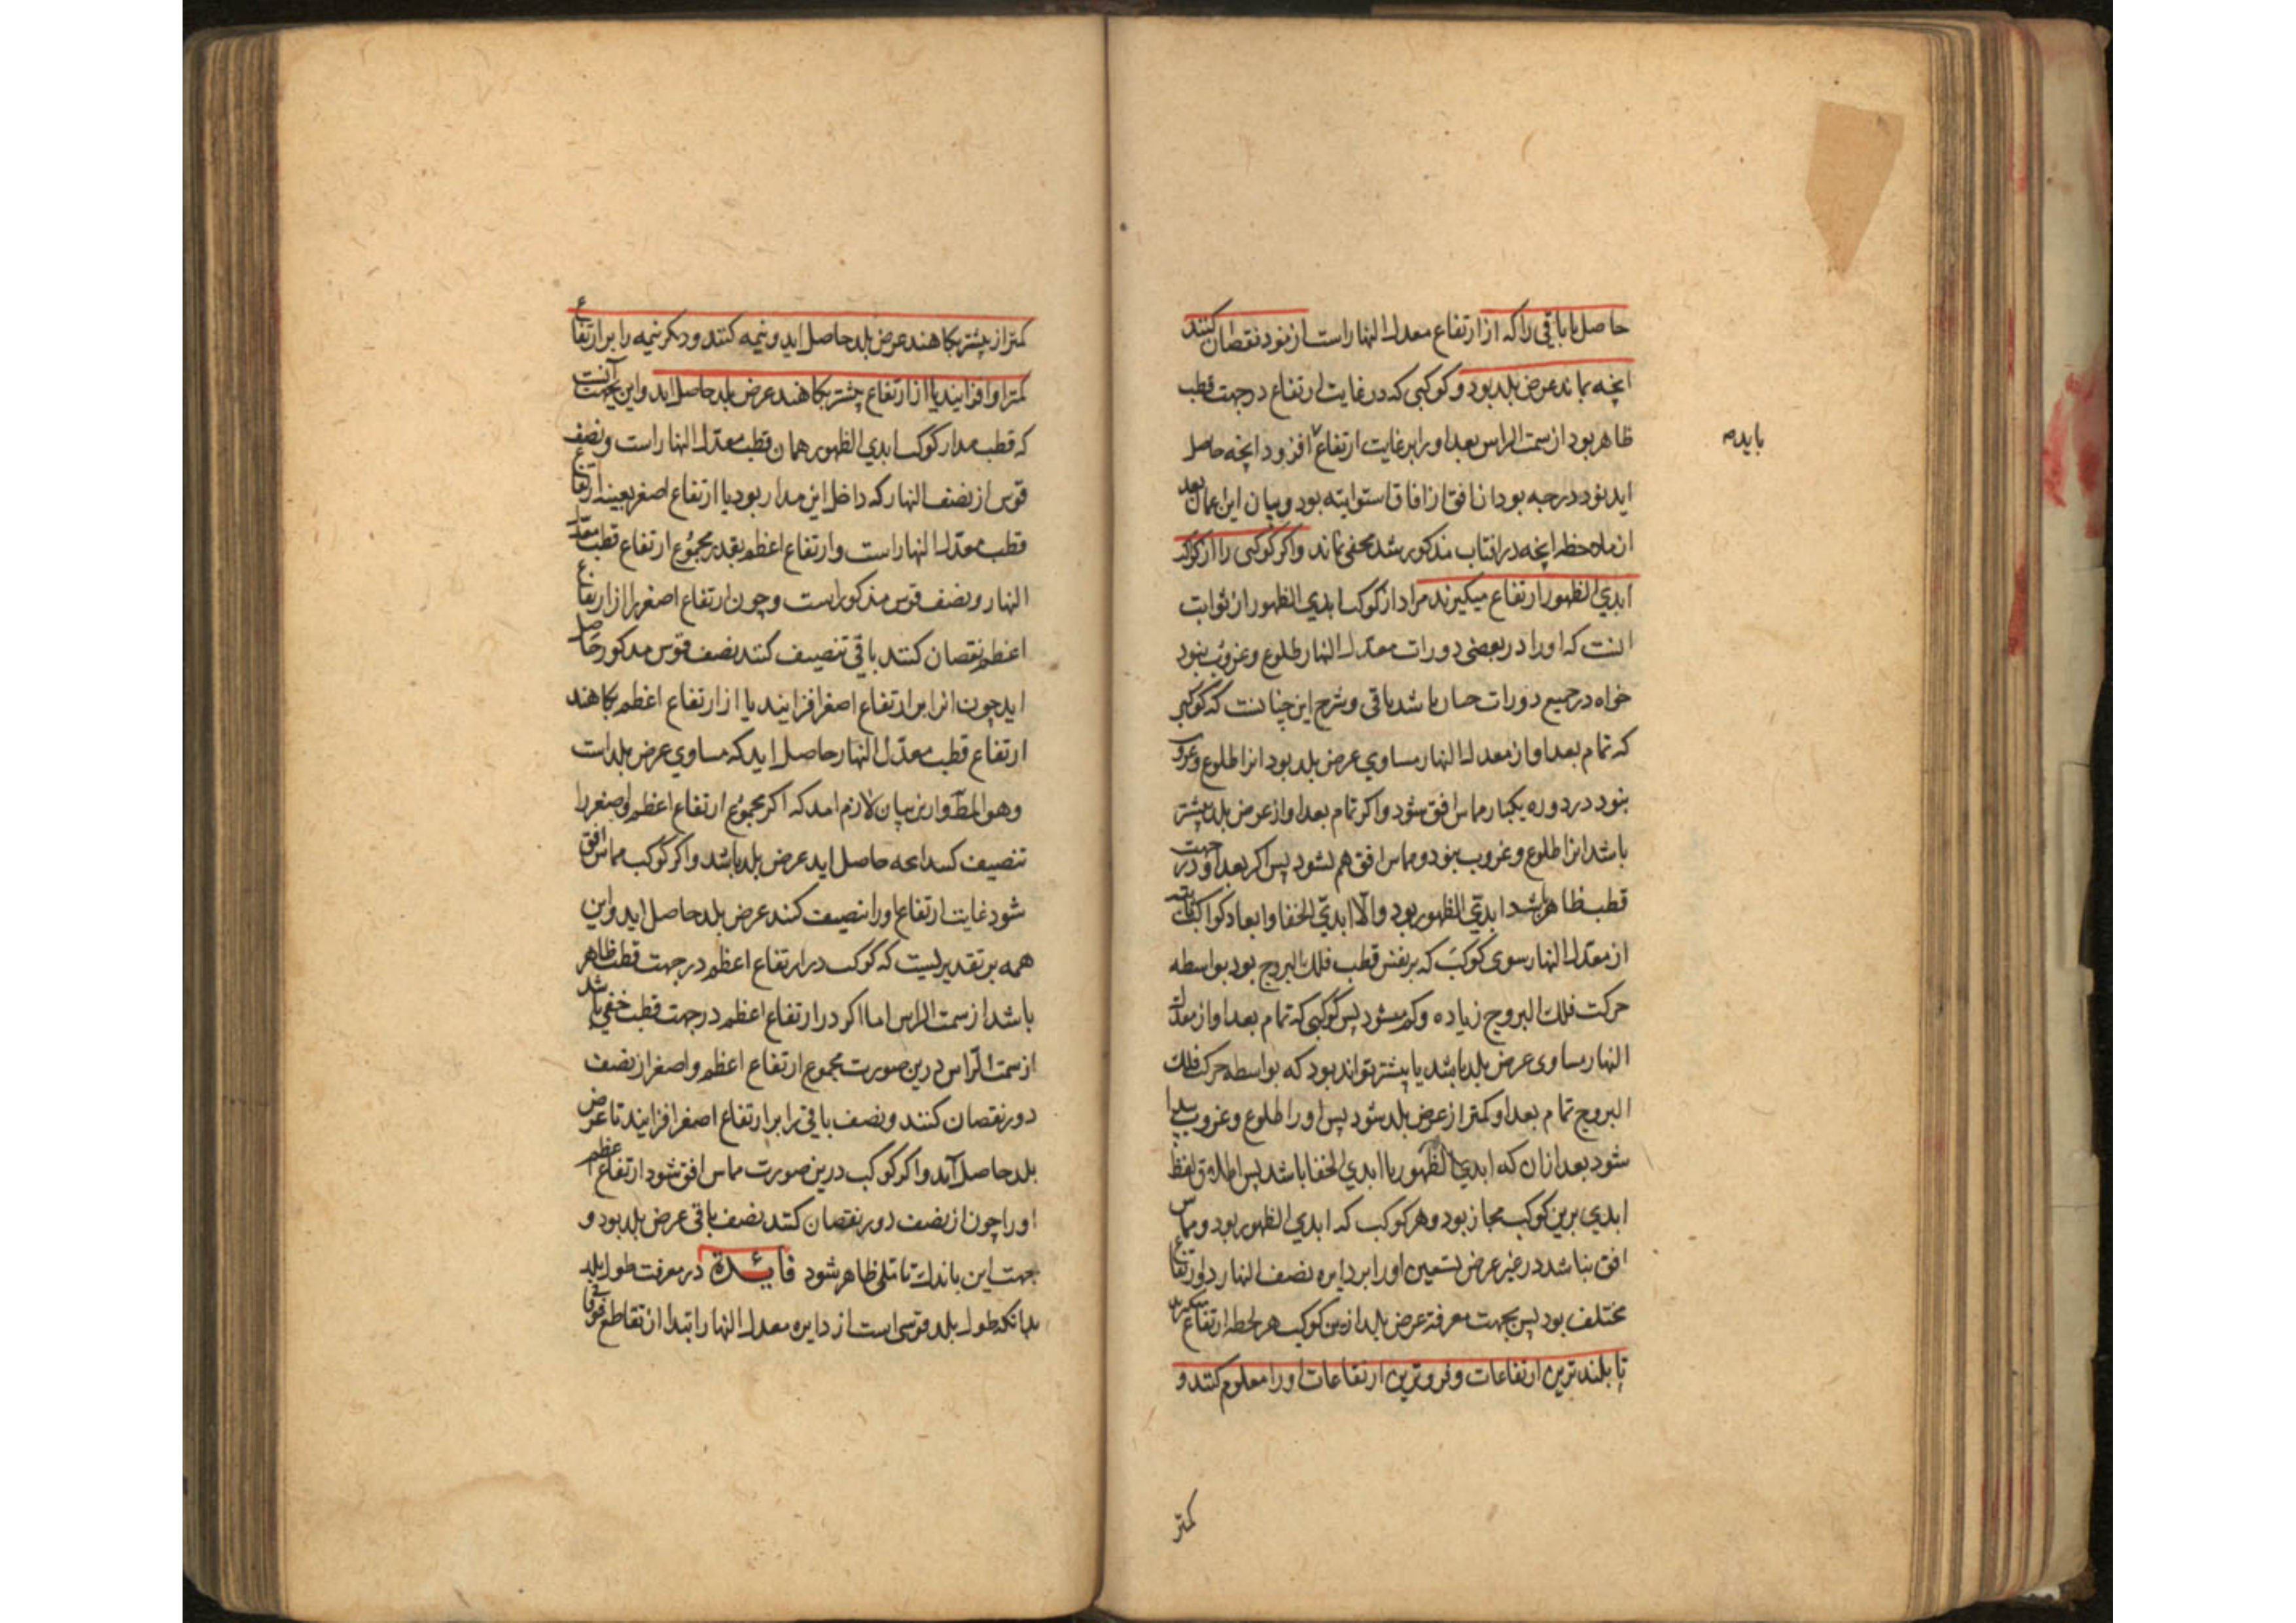 حاصل یا باقی را که از ارتفاع معدل النهار است از نود نقصان کنند
انچه بماند عرض بلد بود و کوکبی که در غایت ارتفاع در جهت قطب
ظاهر بود از سمت الراس بعد او را بر غایت ارتفاع افزود انچه حاصل
بایده
اید نود درجه بود ان افق از افاق استوائیه بود و بیان این اعمال بعد
از ملاحظه انچه در افتاب مذکور شد مخفی نماند و اکر کوکبی را از کواکب
ابدی الظهور ارتفاع میکیرند مراد از کوکب ابدی الظهور از ثوابت
انست که او را در بعضی دورات معدل النهار طلوع و غروب نبود
خواه در جمیع دورات حسان باشد یا قی و شرح این چنانست که کوکبی
که تمام بعد او از معدل النهار مساوی عرض بلد بود انرا طلوع و غروب
نبود در دوره یکبار مماس افق شود و اکر تمام بعد او از عرض بلد بیشتر
باشد انرا طلوع و غروب نبود و مماس افق هم نشود پس اکر بعد او در جهت
قطب ظاهر باشد ابدی الظهور بود و الا ابدی الخفا و ابعاد کواکب ثابته
از معدل النهار سوی کوکب که بر نفس قطب فلک البروج بود بواسطه
حرکت فلک البروج زیاده و کم میشود پس کوکبی که تمام بعد او از معدل
النهار مساوی عرض بلد باشد یا بیشتر تواند بود که بواسطه حرکت فلک
البروج تمام بعد او کمتر از عرض بلد شود پس او را طلوع و غروب پیدا
شود بعد ازان که ابدی الظهور یا ابدی الخفا باشد پس اطلاق لفظ
ابدی برین کوکب مجاز بود و هر کوکب که ابدی الظهور بود و مماس
افق نباشد در غیر عرض تسعین او را بر دایره نصف النهار دو ارتفاع
مختلف بود پس بجهت معرفة عرض بلد ازین کوکب هر لحظه ارتفاع میکیرند
تا بلندترین ارتفاعات و فروترین ارتفاعات او را معلوم کنند و
کمتر
کمتر از بیشتر بکاهند عرض بلد حاصل اید و نیمه کنند و دیکر نیمه را بر ارتفاع
کمتر او افزایند یا از ارتفاع بیشتر بکاهند عرض بلد حاصل اید و این بجهت آنست
که قطب مدار کوکب ابدی الظهور همان قطب معدل النهار است و نصف
قوس از نصف النهار که داخل این مدار بود با ارتفاع اصغر بعینه ارتفاع
قطب معدل النهار است و ارتفاع اعظم بقدر مجموع ارتفاع قطب معدل
النهار و نصف قوس مذکور است و چون ارتفاع اصغر را از ارتفاع
اعظم نقصان کنند باقی تنصیف کنند نصف قوس مذکور حاصل
اید چون انرا بر ارتفاع اصغر افزایند یا از ارتفاع اعظم بکاهند
ارتفاع قطب معدل النهار حاصل اید که مساوی عرض بلد است
و هو المط و ازین بیان لازم امد که اکر مجموع ارتفاع اعظم و اصغر را
تنصیف کنند انچه حاصل اید عرض بلد باشد و اکر کوکب مماس افق
شود غایت ارتفاع او را تنصیف کنند عرض بلد حاصل اید و این
همه بر تقدیریست که کوکب در ارتفاع اعظم در جهت قطب ظاهر
باشد از سمت الراس اما اکر در ارتفاع اعظم در جهت قطب خفی باشد
از سمت الراس درین صورت مجموع ارتفاع اعظم و اصغر از نصف
دور نقصان کنند و نصف باقی را بر ارتفاع اصغر افزایند تا عرض
بلد حاصل آید و اکر کوکب درین صورت مماس افق شود ارتفاع اعظم
او را چون از نصف دور نقصان کنند نصف باقی عرض بلد بود و
جهت این باندک تاملی ظاهر شود فائدة در معرفت طول بلد
بدانکه طول بلد قوسی است از دایره معدل النهار ابتدا از تقاطع فوقانی